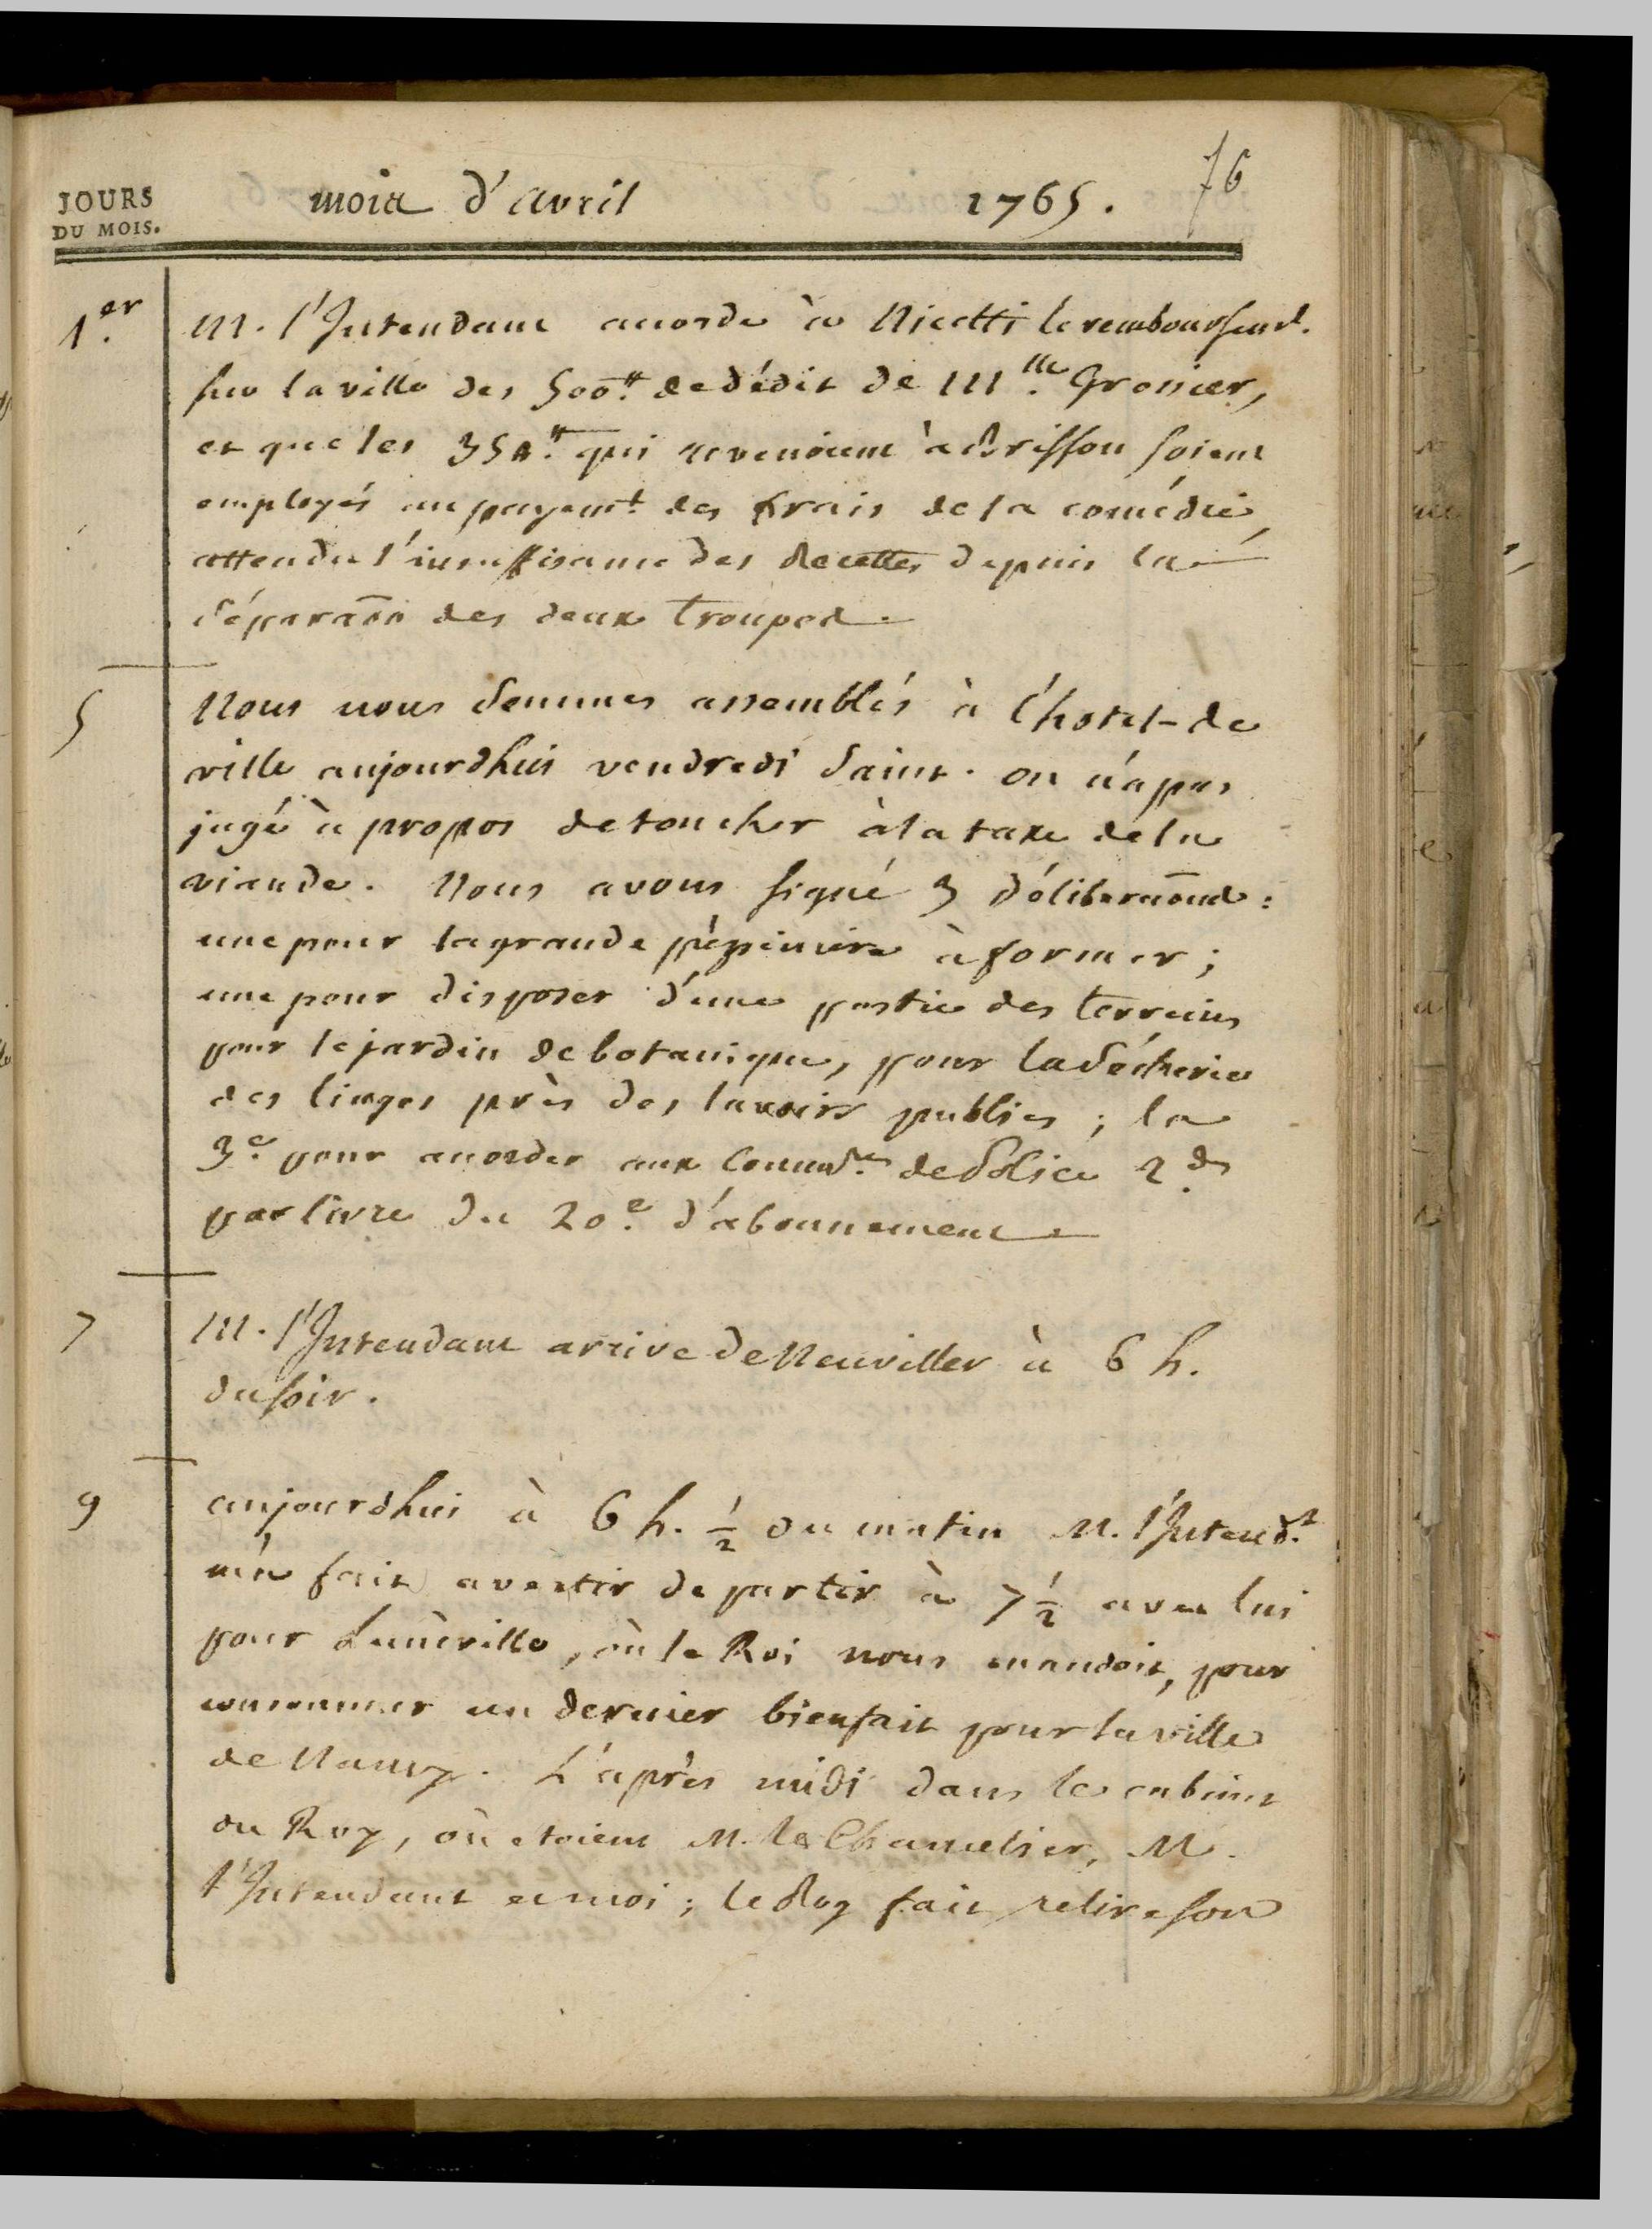 76
JOURS
DU MOIS.
mois d'avril 1765.
1.er M. l'Intendant accorde à Nicetti le remboursemt.
sur la ville des 500.tt de dédit de Mlle. Grosier,
et que les 350.tt qui revenoient à Brisson soient
employés au payemt. des frais de la comédie,
attendu l'insuffisance des Recettes depuis la
séparaõn des deux troupes.
5 Nous nous sommes assemblés à l'hotel-de
ville aujourdhui vendredi saint. on n'a pas
jugé à propos de toucher à la taxe de la
viande. Nous avons signé 3 déliberaõns:
une pour la grande pépiniere à former;
une pour disposer d'une partie des terreins
pour le jardin de botanique, pour la sécherie
des linges près des lavoirs publics; la
3.e pour accorder aux Commres. de Police 2 ds.
par livre du 20.e d'abonnement
7 M. l'Intendant arrive de Neuviller à 6 h.
du soir.
9 aujourdhui à 6 h. 1/2 du matin M. l'Intendt.
m'a fait avertir de partir à 7 1/2 avec lui
pour Lunéville, où le Roi nous mandoit, pour
consommer un dernier bienfait pour la ville
de Nancy. L'après midi dans le cabinet
du Roy, où etoient M. le Chancelier, M.
l'Intendant et moi; le Roy fait relire son